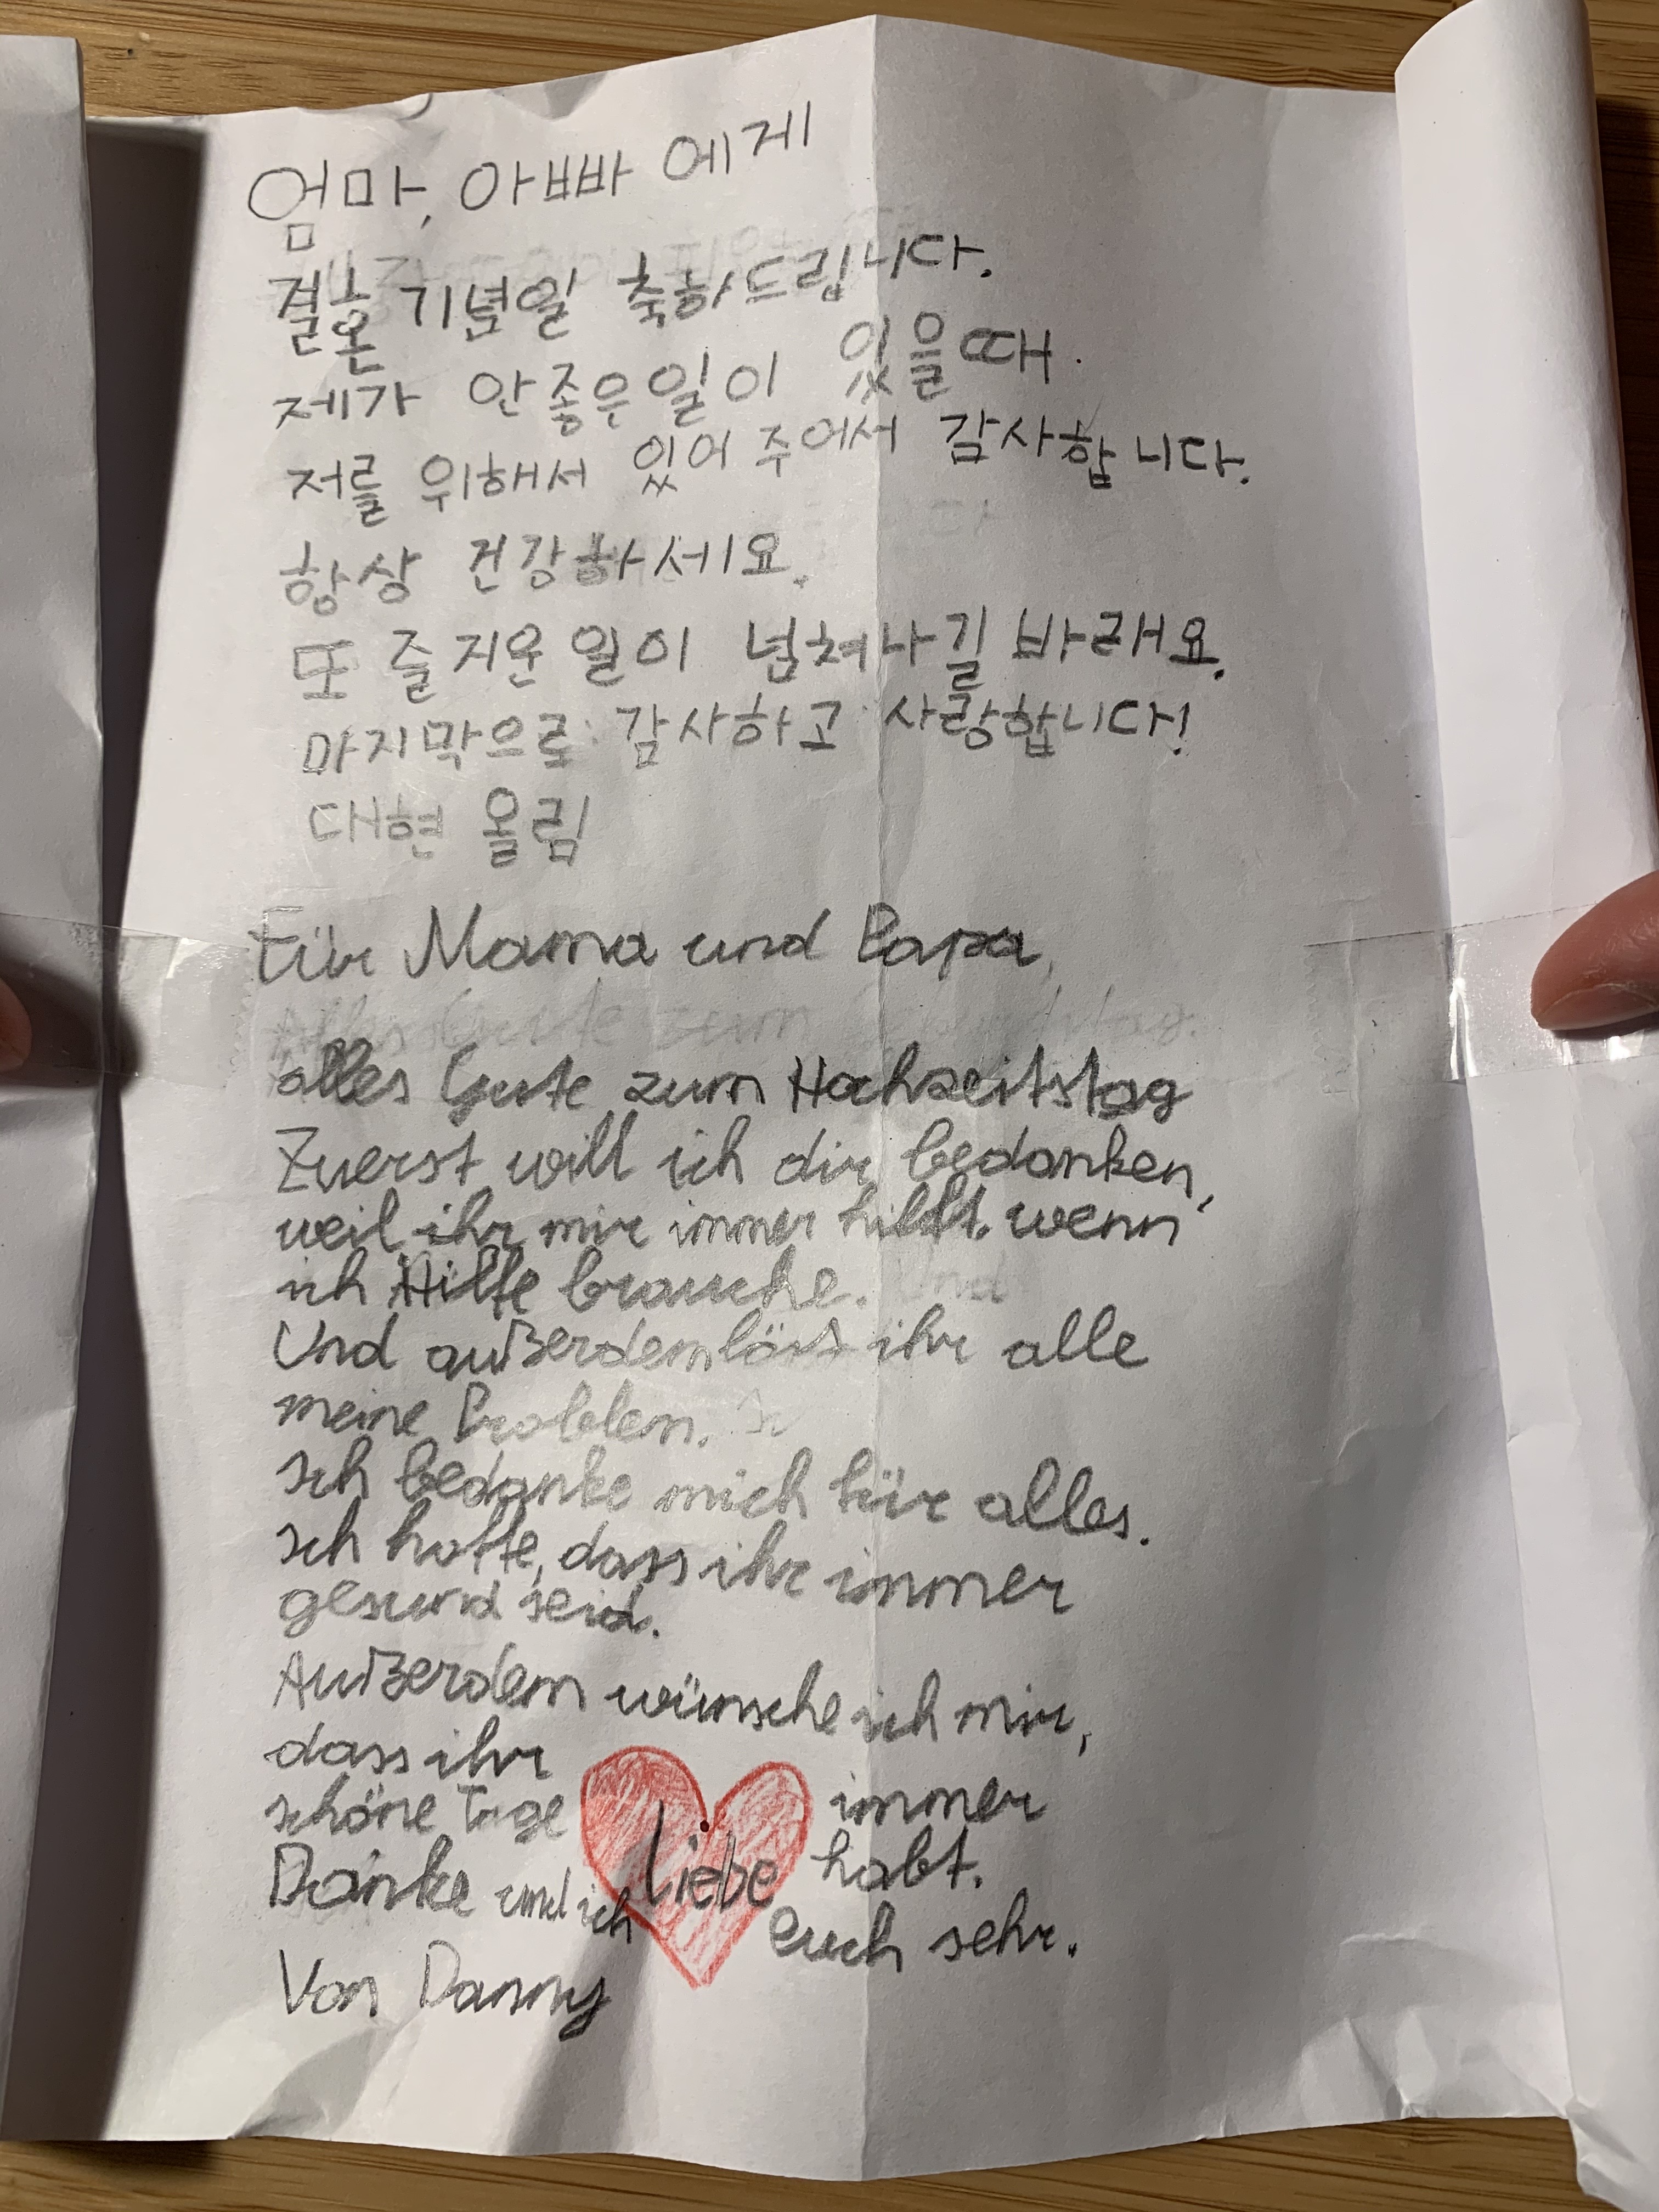 엄마, 아빠 에게
결혼 기념일 축하드립니다.
제가 안좋은일이 있을때.
저를 위해서 있어 주어서 감사합니다.
항상 건강하세요.
또 즐지운 일이 넘쳐나길 바래요.
마지막으로 감사하고 사랑합니다!
대현 올림
Für Mama und Papa,
Alles Gute zum
alles Gute zum Hochzeitstag
Zuerst will ich dir bedanken,
weil ihr mir immer hilft. wenn
ich Hilfe brauche. Und
Und außerdem löst ihr alle
meine Problem.
Ich bedanke mich für alles.
Ich hoffe, dass ihr immer
gesund seid.
Außerdem wünsche ich mir,
dass ihr
schöne Tage immer
habt.
Danke und ich Liebe euch sehr.
Von Danny